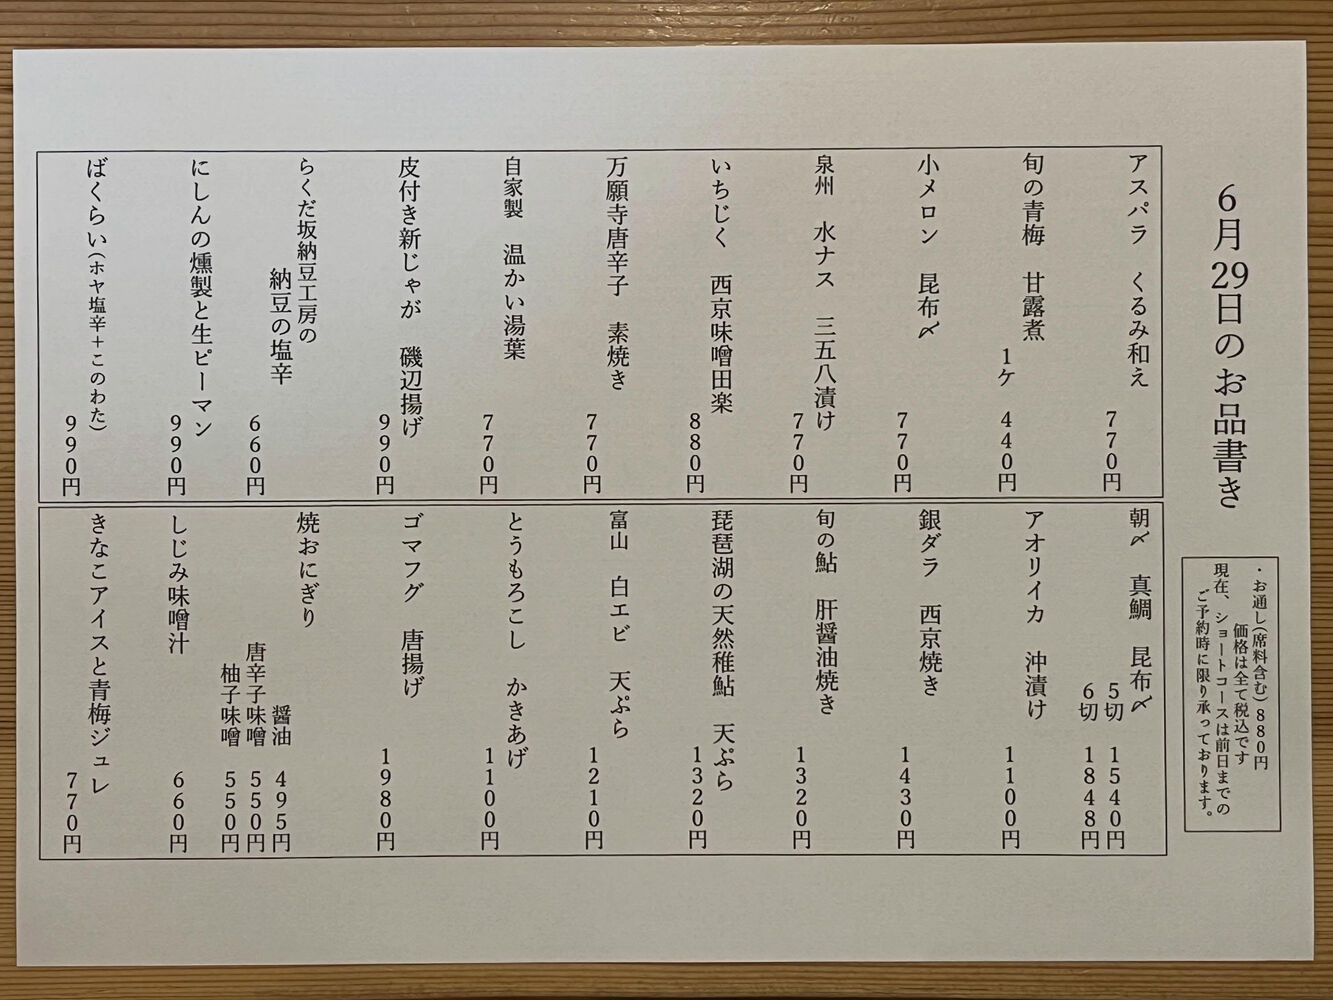 6月29日のお品書き
・お通し(席料含む)880円
価格は全て税込です
現在、ショートコースは前日までの
ご予約時に限り承っております。
アスパラ くるみ和え
770円
旬の青梅 甘露煮
1ケ 440円
小メロン 昆布〆
770円
泉州 水ナス 三五八漬け
770円
いちじく 西京味噌田楽
880円
万願寺唐辛子 素焼き
770円
自家製 温かい湯葉
770円
皮付き新じゃが 磯辺揚げ
990円
らくだ坂納豆工房の
納豆の塩辛
660円
にしんの燻製と生ピーマン
990円
ばくらい(ホヤ塩辛+このわた)
990円
朝〆 真鯛 昆布〆
5切 1540円
6切 1848円
アオリイカ 沖漬け
1100円
銀ダラ 西京焼き
1430円
旬の鮎 肝醤油焼き
1320円
琵琶湖の天然稚鮎 天ぷら
1320円
富山 白エビ 天ぷら
1210円
とうもろこし かきあげ
1100円
ゴマフグ 唐揚げ
1980円
焼おにぎり
醤油 495円
唐辛子味噌 550円
柚子味噌 550円
しじみ味噌汁
660円
きなこアイスと青梅ジュレ
770円